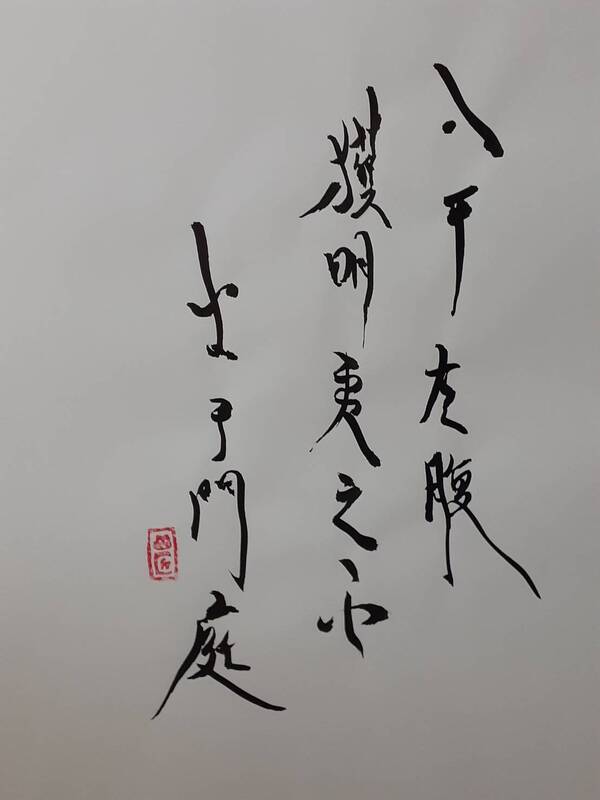 入于左腹
獲明夷之心
出于門庭